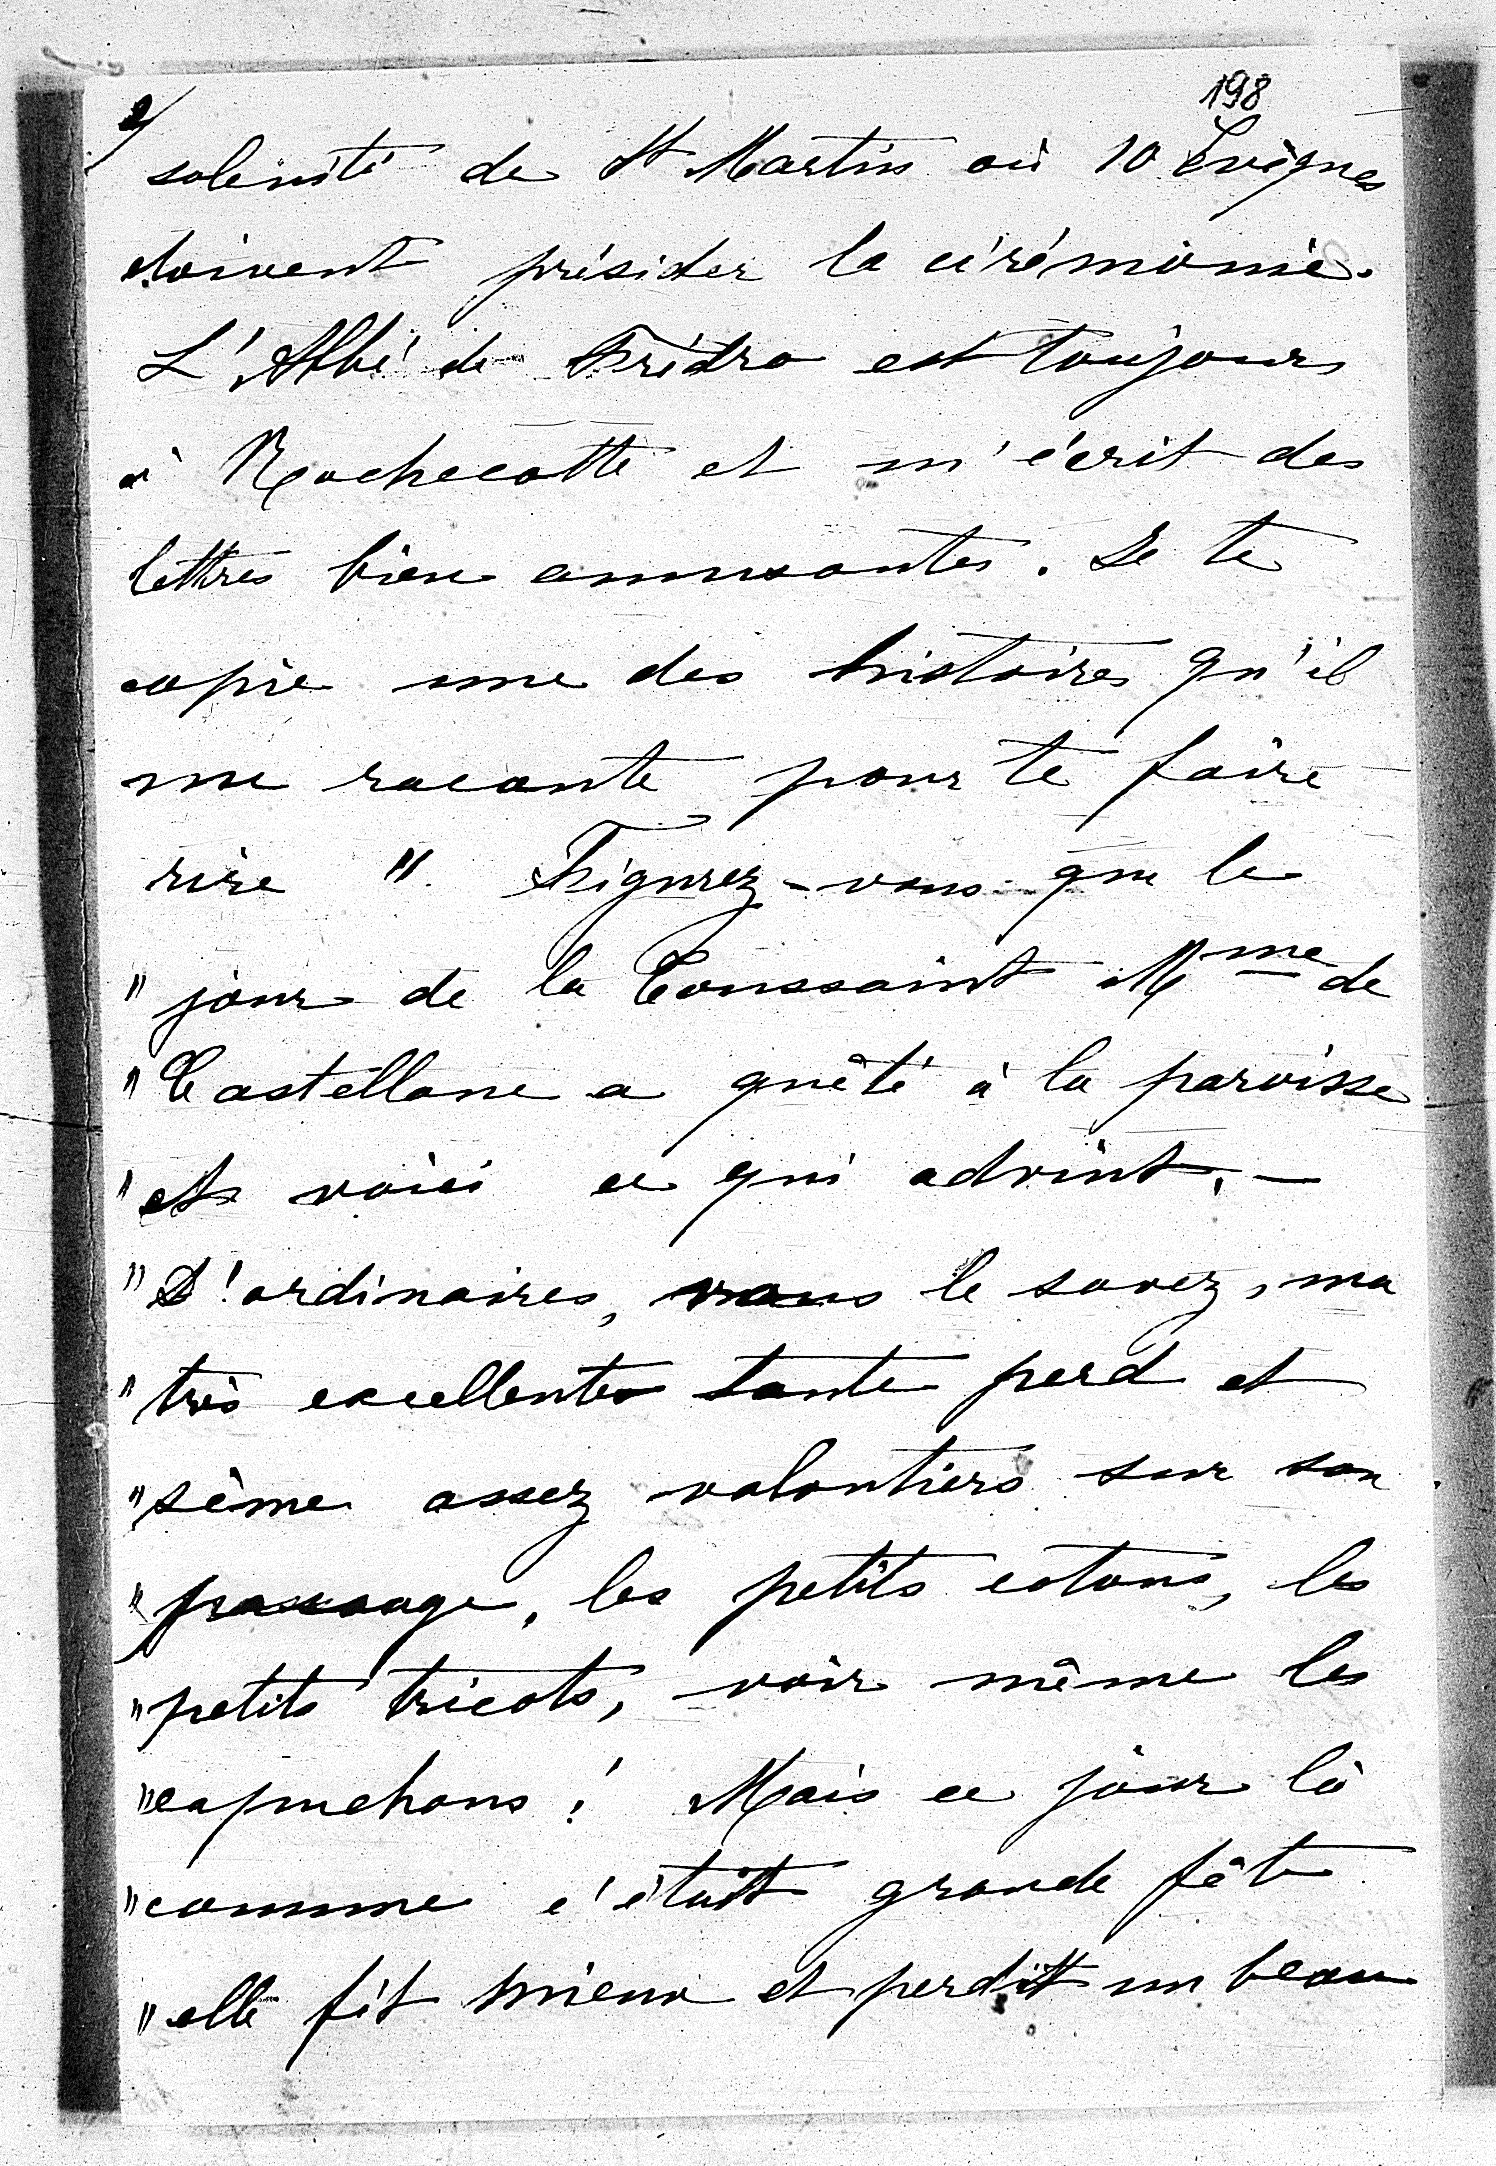 198
2/
solénité de St Martin où 10 Evêques
doivent présider la cérémonie.
L'Abbé de Frédro est toujours
à Rochecotte et m'écrit des
lettres bien amusantes. Je te
copie une des histoires qu'il
me raconte pour te faire
rire ". Figurez-vous que le
" jour de la Toussaint Mme de
" Castellane a quêté à la paroisse
" et voici ce qui advint. —
" D'ordinaires, vous le savez, ma
" très excellente tante perd et
" sème assez volontiers sur son
" passage, les petits cotons, les
" petits tricots, voir même les
" capuchons! Mais ce jour là
" comme c'était grande fête
" elle fit mieux et perdit un beau